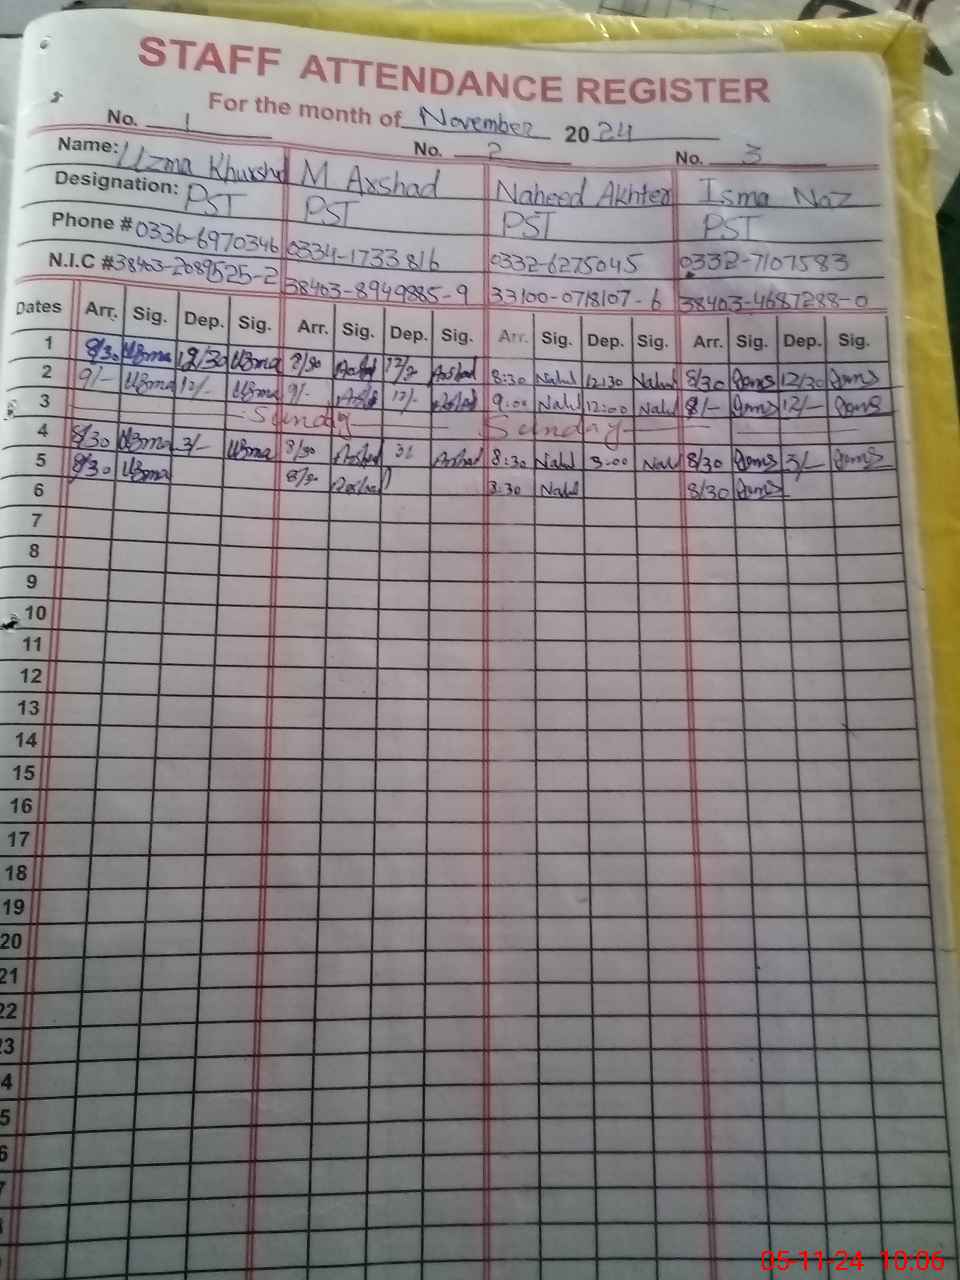 STAFF ATTENDANCE REGISTER
For the month of November 2024
No. 1 No. 2 No. 3
Name: Uzma Khurshd M Arshad Naheed Akhter Isma Naz
Designation: PST PST PST PST
Phone # 0336-6970346 0334-1733816 0332-6275045 0332-7107583
N.I.C # 38403-2089525-2 38403-8949885-9 33100-0718107-6 38403-4687288-0
Dates Arr. Sig. Dep. Sig. Arr. Sig. Dep. Sig. Arr. Sig. Dep. Sig. Arr. Sig. Dep. Sig.
1 8/30 Uzma 12/30 Uzma 8/30 Arshad Arshad 8:30 Nahd 12:30 Nahd 8/30 12/30
2 9/- Uzma 12/- Uzma 9/- Arshd 12/- Arshad 9:00 Nahd 12:00 Nahd 8/- 12/-
3 Sunday Sunday
4 8/30 Uzma 3/- Uzma 8/30 Arshad Arshad 8:30 Nahd 3:00 Nahd 8/30 3/-
5 8/30 Uzma 8/30 Arshad 8:30 Nahd 8/30
6
7
8
9
10
11
12
13
14
15
16
17
18
19
20
21
22
23
4
5
6
7
05-11-24 10:06